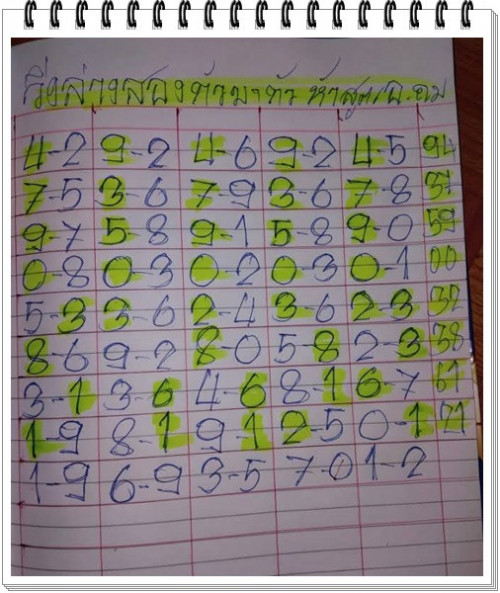 วิ่งล่างสองตัวมาตัว ห้าสูตร
4-2 9-2 4-6 9-2 4-5 94
7-5 3-6 7-9 3-6 7-8 37
9-7 5-8 9-1 5-8 9-0 59
0-8 0-3 0-2 0-3 0-1 00
5-3 3-6 2-4 3-6 2-3 32
8-6 9-2 8-0 5-8 2-3 38
3-1 3-6 4-6 8-1 6-7 61
1-9 8-1 9-1 2-5 0-1 21
1-9 6-9 3-5 7-0 1-2